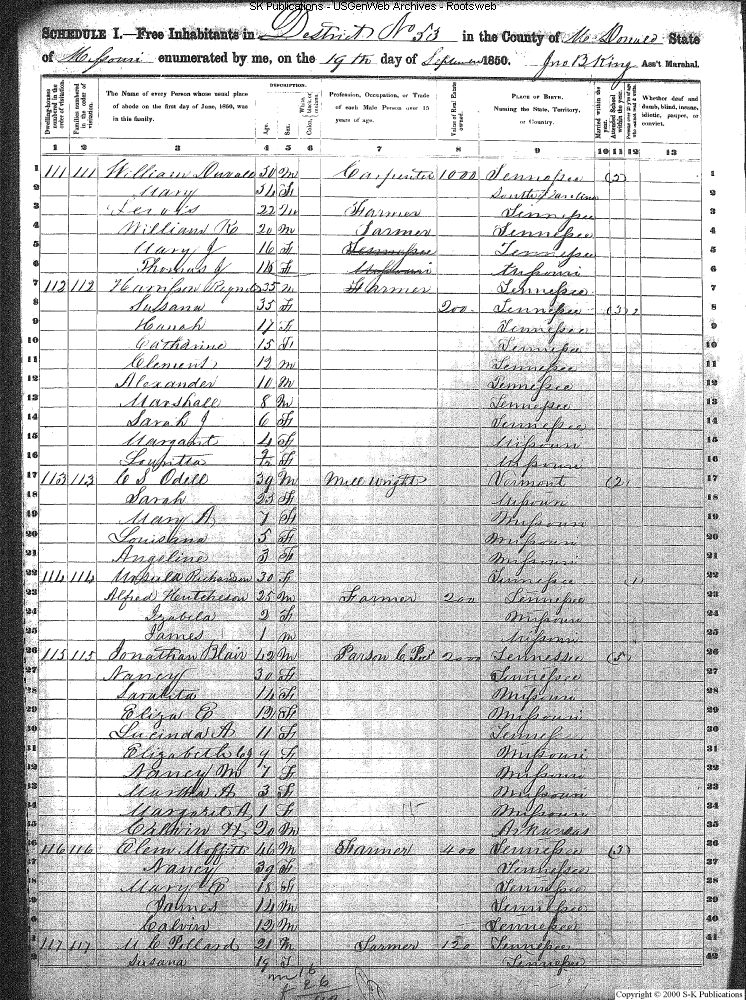 SK Publications - USGenWeb Archives - Rootsweb
SCHEDULE I.—Free Inhabitants in District No 53 in the County of McDonald State
of Missouri enumerated by me, on the 19th day of September 1850. Jno B King Ass't Marshal.
Dwelling-houses numbered in the order of visitation.
Families numbered in the order of visitation.
The Name of every Person whose usual place of abode on the first day of June, 1850, was in this family.
DESCRIPTION.
Age.
Sex.
White, black, or mulatto.
Color,
Profession, Occupation, or Trade of each Male Person over 15 years of age.
Value of Real Estate owned.
PLACE OF BIRTH. Naming the State, Territory, or Country.
Married within the year.
Attended School within the year.
Persons over 20 y'rs of age who cannot read & write.
Whether deaf and dumb, blind, insane, idiotic, pauper, or convict.
1 2 3 4 5 6 7 8 9 10 11 12 13
1 111 111 William Duvall 50 M Carpenter 1000 Tennessee (2) 1
2 Mary 54 F South Carolina 2
3 Lewis 22 M Farmer Tennessee 3
4 William R 20 M Farmer Tennessee 4
5 Mary J 16 F Tennessee Tennessee 5
6 Thomas J 14 F Missouri Missouri 6
7 112 112 Harrison 35 M Farmer Tennessee 7
8 Susana 35 F 200 Tennessee (3) 8
9 Hanah 17 F Tennessee 9
10 Catharine 15 F Tennessee 10
11 Clement 12 M Tennessee 11
12 Alexander 10 M Tennessee 12
13 Marshall 8 M Tennessee 13
14 Sarah J 6 F Tennessee 14
15 Margaret 4 F Missouri 15
16 F Missouri 16
17 113 113 C S Odell 39 M Mill Wright Vermont (2) 17
18 Sarah 25 F Missouri 18
19 Mary A 7 F Missouri 19
20 Louisana 5 F Missouri 20
21 Angeline 3 F Missouri 21
22 114 114 Ursula Richardson 30 F Tennessee 1 22
23 Alfred Hutcheson 25 M Farmer 200 Tennessee 23
24 Izabela 2 F Missouri 24
25 James 1 M Missouri 25
26 115 115 Jonathan Blair 42 M Parson 2000 Tennessee (5) 26
27 Nancy 30 F Tennessee 27
28 14 F Missouri 28
29 Eliza E 12 F Missouri 29
30 Lucinda A 11 F Tennessee 30
31 Elizabeth 9 F Missouri 31
32 Nancy M 7 F Missouri 32
33 Martha A 3 F Missouri 33
34 Margaret A 1 F 15 Missouri 34
35 Calvin H 20 M Arkansas 35
36 116 116 Clem Moffitt 46 M Farmer 400 Tennessee (3) 36
37 Nancy 39 F Tennessee 37
38 Mary E 18 F Tennessee 38
39 James 14 M Tennessee 39
40 Calvin 12 M Tennessee 40
41 117 117 M C Pollard 21 M Farmer 120 Tennessee 41
42 Susana 19 F Tennessee 42
m 16
f 26
Copyright © 2000 S-K Publications